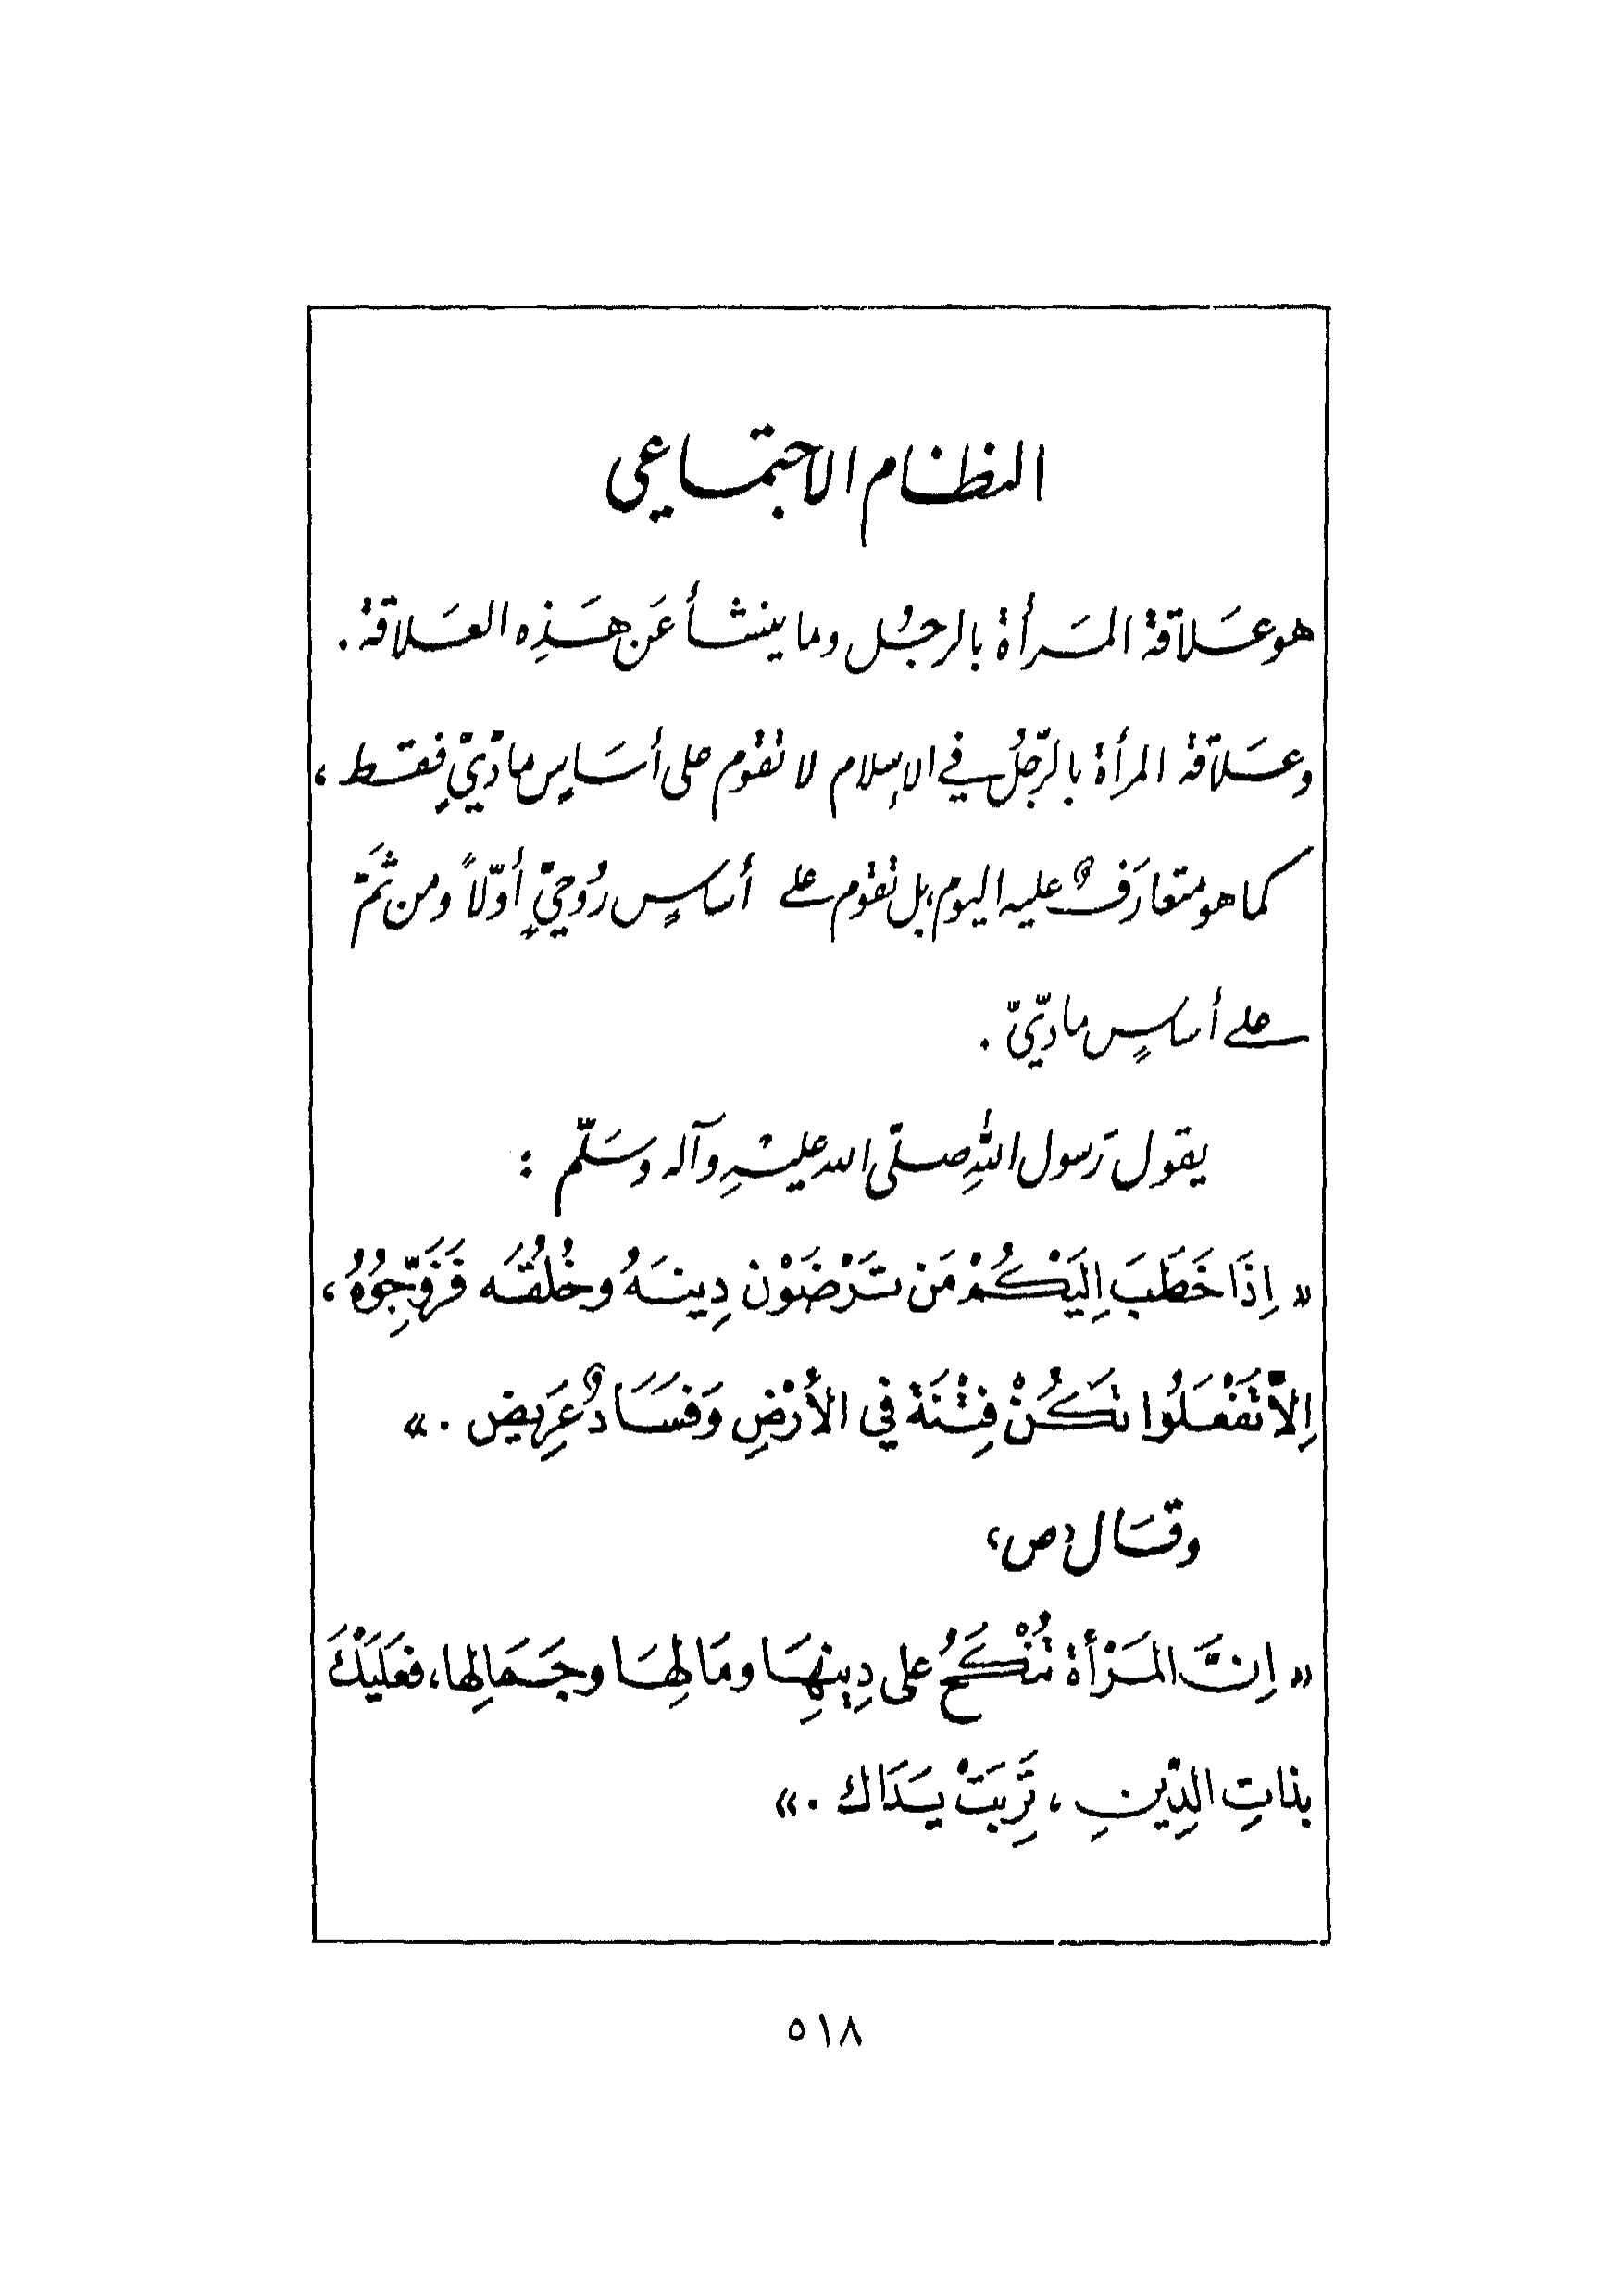 النظام الاجتماعي
هو عَلاقة المَرأة بالرجُل وما ينشأ عَن هَذِه العَلاقة .
وعَلاقة المرأة بالرّجُل في الإسلام لا تقوم على أسَاسٍ مادّيّ فقط ،
كما هو متعارَفٌ عليه اليوم، بل تقوم على أساسٍ رُوحيٍّ أوّلاً ومن ثَمّ
على أساسٍ مادّيّ .
يقول رَسول اللهِ صلّى الله عليْهِ وآله وسَلّم :
« اِذَا خَطَبَ اِلَيْكُمْ مَن تَرْضَوْن دِينَهُ وخُلُقَه فَزَوِّجُوُهُ ،
اِلاّ تَفْعَلُوا تَكُنْ فِتْنَة في الأَرْضِ وَفسَادٌ عَرِيض . »
وقَال (ص)
« اِنَّ المَرْأة تُنْكَحُ على دِينِهَا ومَالِهَا وجَمَالِها ، فعَلَيْكَ
بذاتِ الدِّينِ ، تَرِبَتْ يَدَاك . »
٥١٨